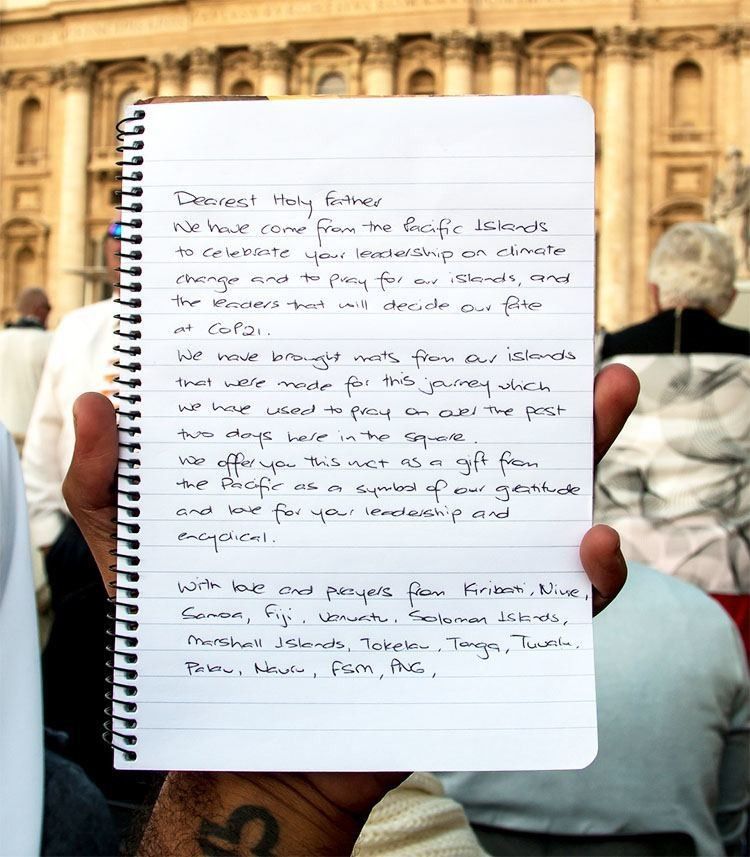 Dearest Holy Father
We have come from the Pacific Islands
to celebrate your leadership on climate
change and to pray for our islands, and
the leaders that will decide our fate
at COP21.
We have brought mats from our islands
that were made for this journey which
we have used to pray on over the past
two days here in the square.
We offer you this mat as a gift from
the Pacific as a symbol of our gratitude
and love for your leadership and
encyclical.
With love and prayers from Kiribati, Niue,
Samoa, Fiji, Vanuatu, Solomon Islands,
Marshall Islands, Tokelau, Tonga, Tuvalu,
Palau, Nauru, FSM, PNG,